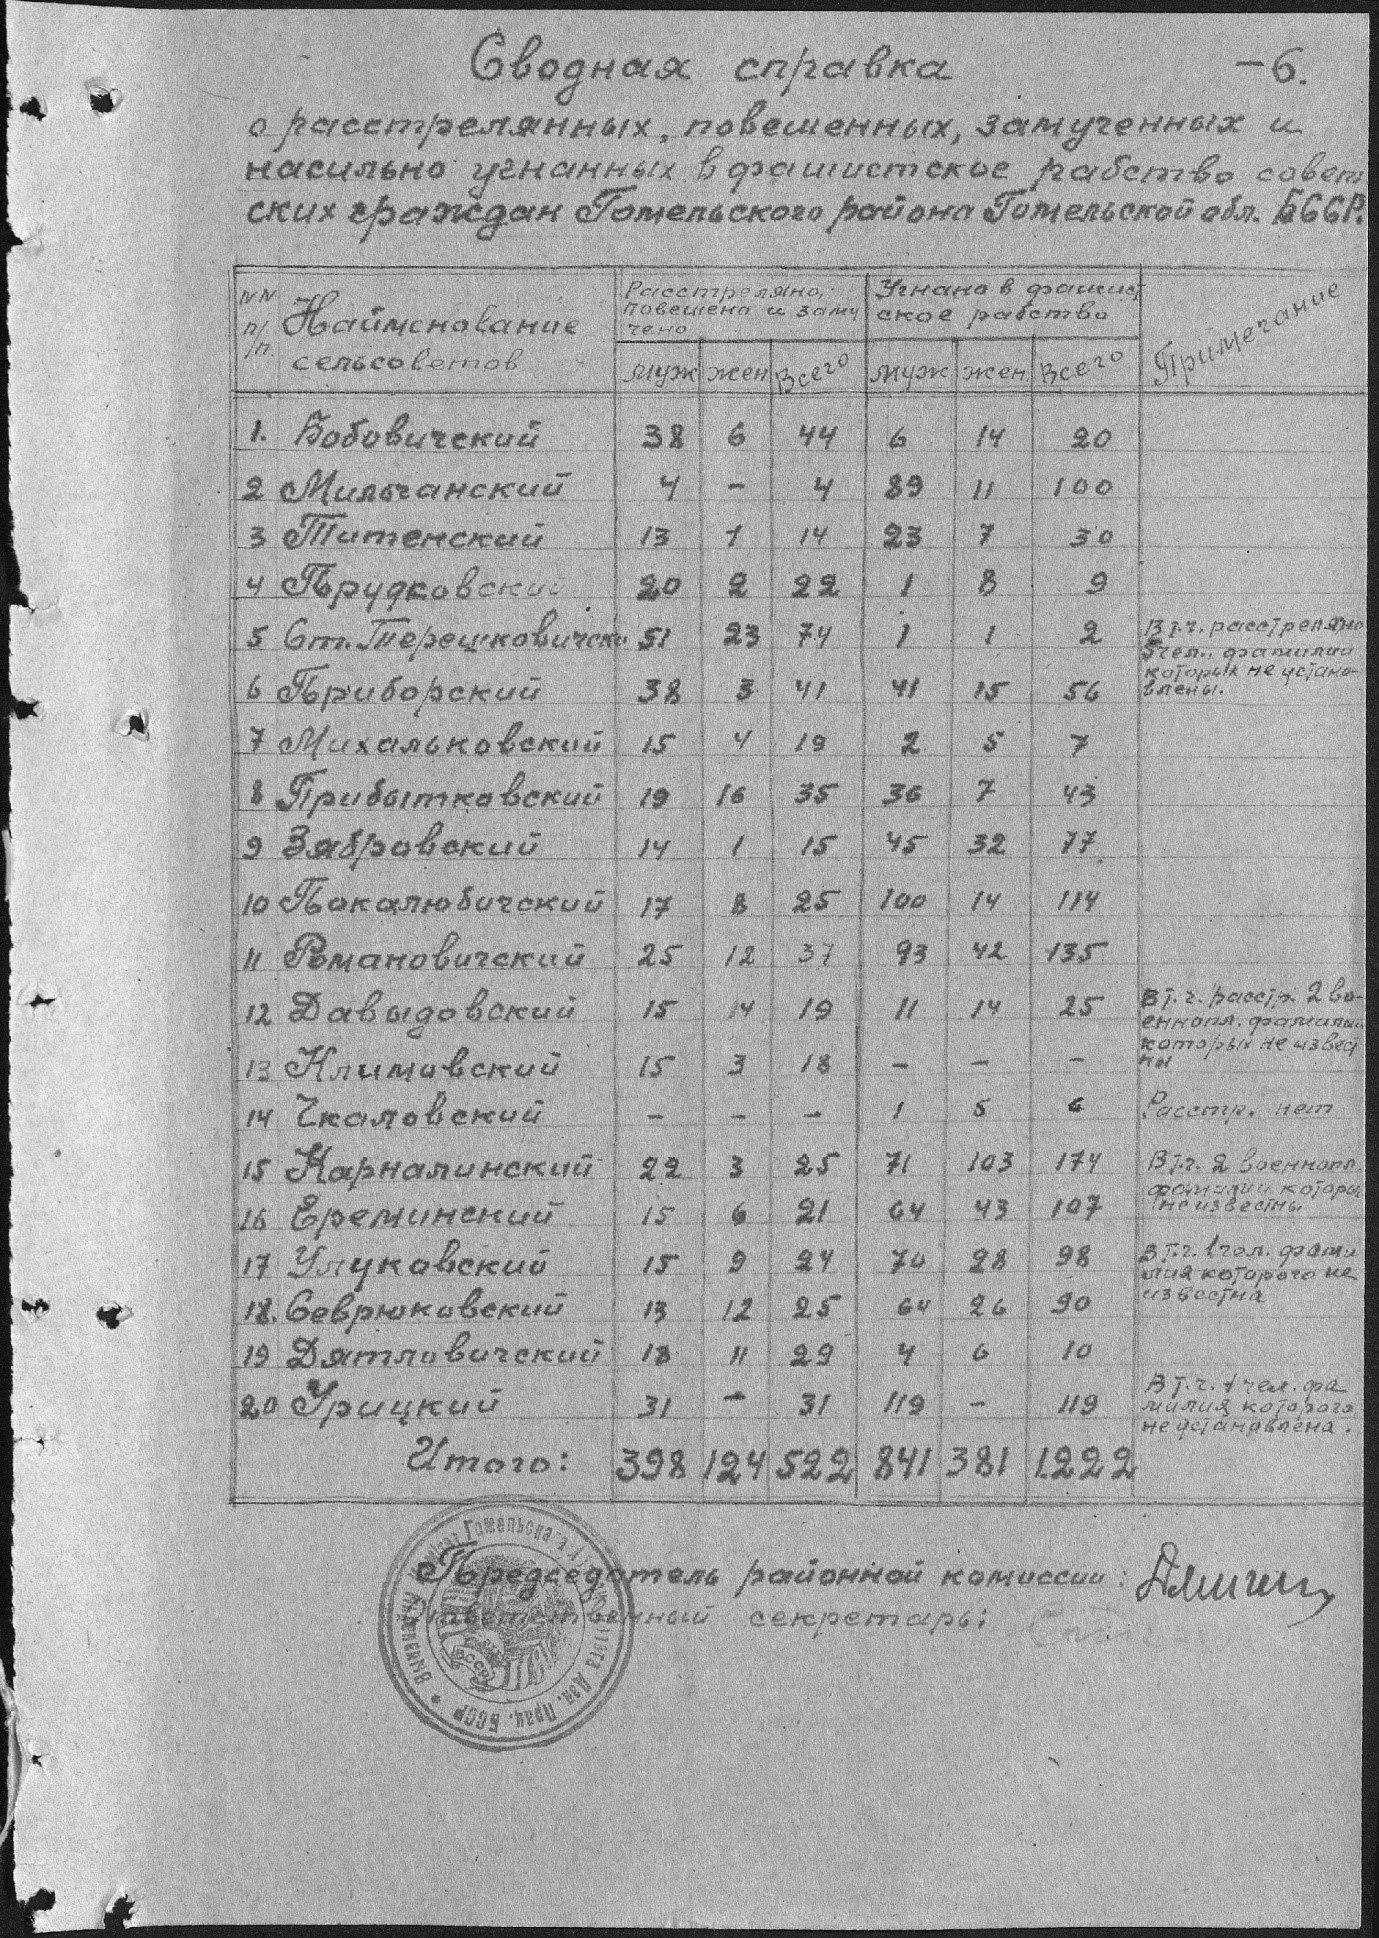 Сводная справка
-6.
о расстрелянных, повешенных, замученных и
насильно угнанных в фашистское рабство совет
ских граждан Гомельского района Гомельской обл. БССР.
NN п/п. Наименование сельсоветов
Расстреляно, повешено и заму чено
Угнано в фашист ское рабство
Примечание
муж жен Всего муж жен Всего
1. Бобовичский 38 6 44 6 14 20
2 Мильчанский 4 - 4 89 11 100
3 Титенский 13 1 14 23 7 30
4 Прудковский 20 2 22 1 8 9
5 Ст. Терешковичски 51 23 74 1 1 2
В т.ч. расстреляно
5 чел., фамилии
которых не устано-
влены.
6 Приборский 38 3 41 41 15 56
7 Михальковский 15 4 19 2 5 7
8 Прибытковский 19 16 35 36 7 43
9 Зябровский 14 1 15 45 32 77
10 Покалюбичский 17 8 25 100 14 114
11 Романовичский 25 12 37 93 42 135
12 Давыдовский 15 14 19 11 14 25
В т.ч. расстр. 2 во-
еннопл. фамилии
которых не извест
ны
13 Климовский 15 3 18 - - -
14 Чкаловский - - - 1 5 6 Расстр. нет
15 Карналинский 22 3 25 71 103 174
В т.ч. 2 военнопл.
фамилии которы
неизвестны
16 Ереминский 15 6 21 64 43 107
17 Улуковский 15 9 24 70 28 98
В т.ч. 1 чел. фами
лия которого не
известна
18. Севрюковский 13 12 25 64 26 90
19 Дятловичский 18 11 29 4 6 10
20 Урицкий 31 - 31 119 - 119
В т.ч. 1 чел. фа
милия которого
не установлена.
Итого: 398 124 522 841 381 1222
Председатель районной комиссии:
Ответственный секретарь:
БССР
Дэп. Прац. БССР